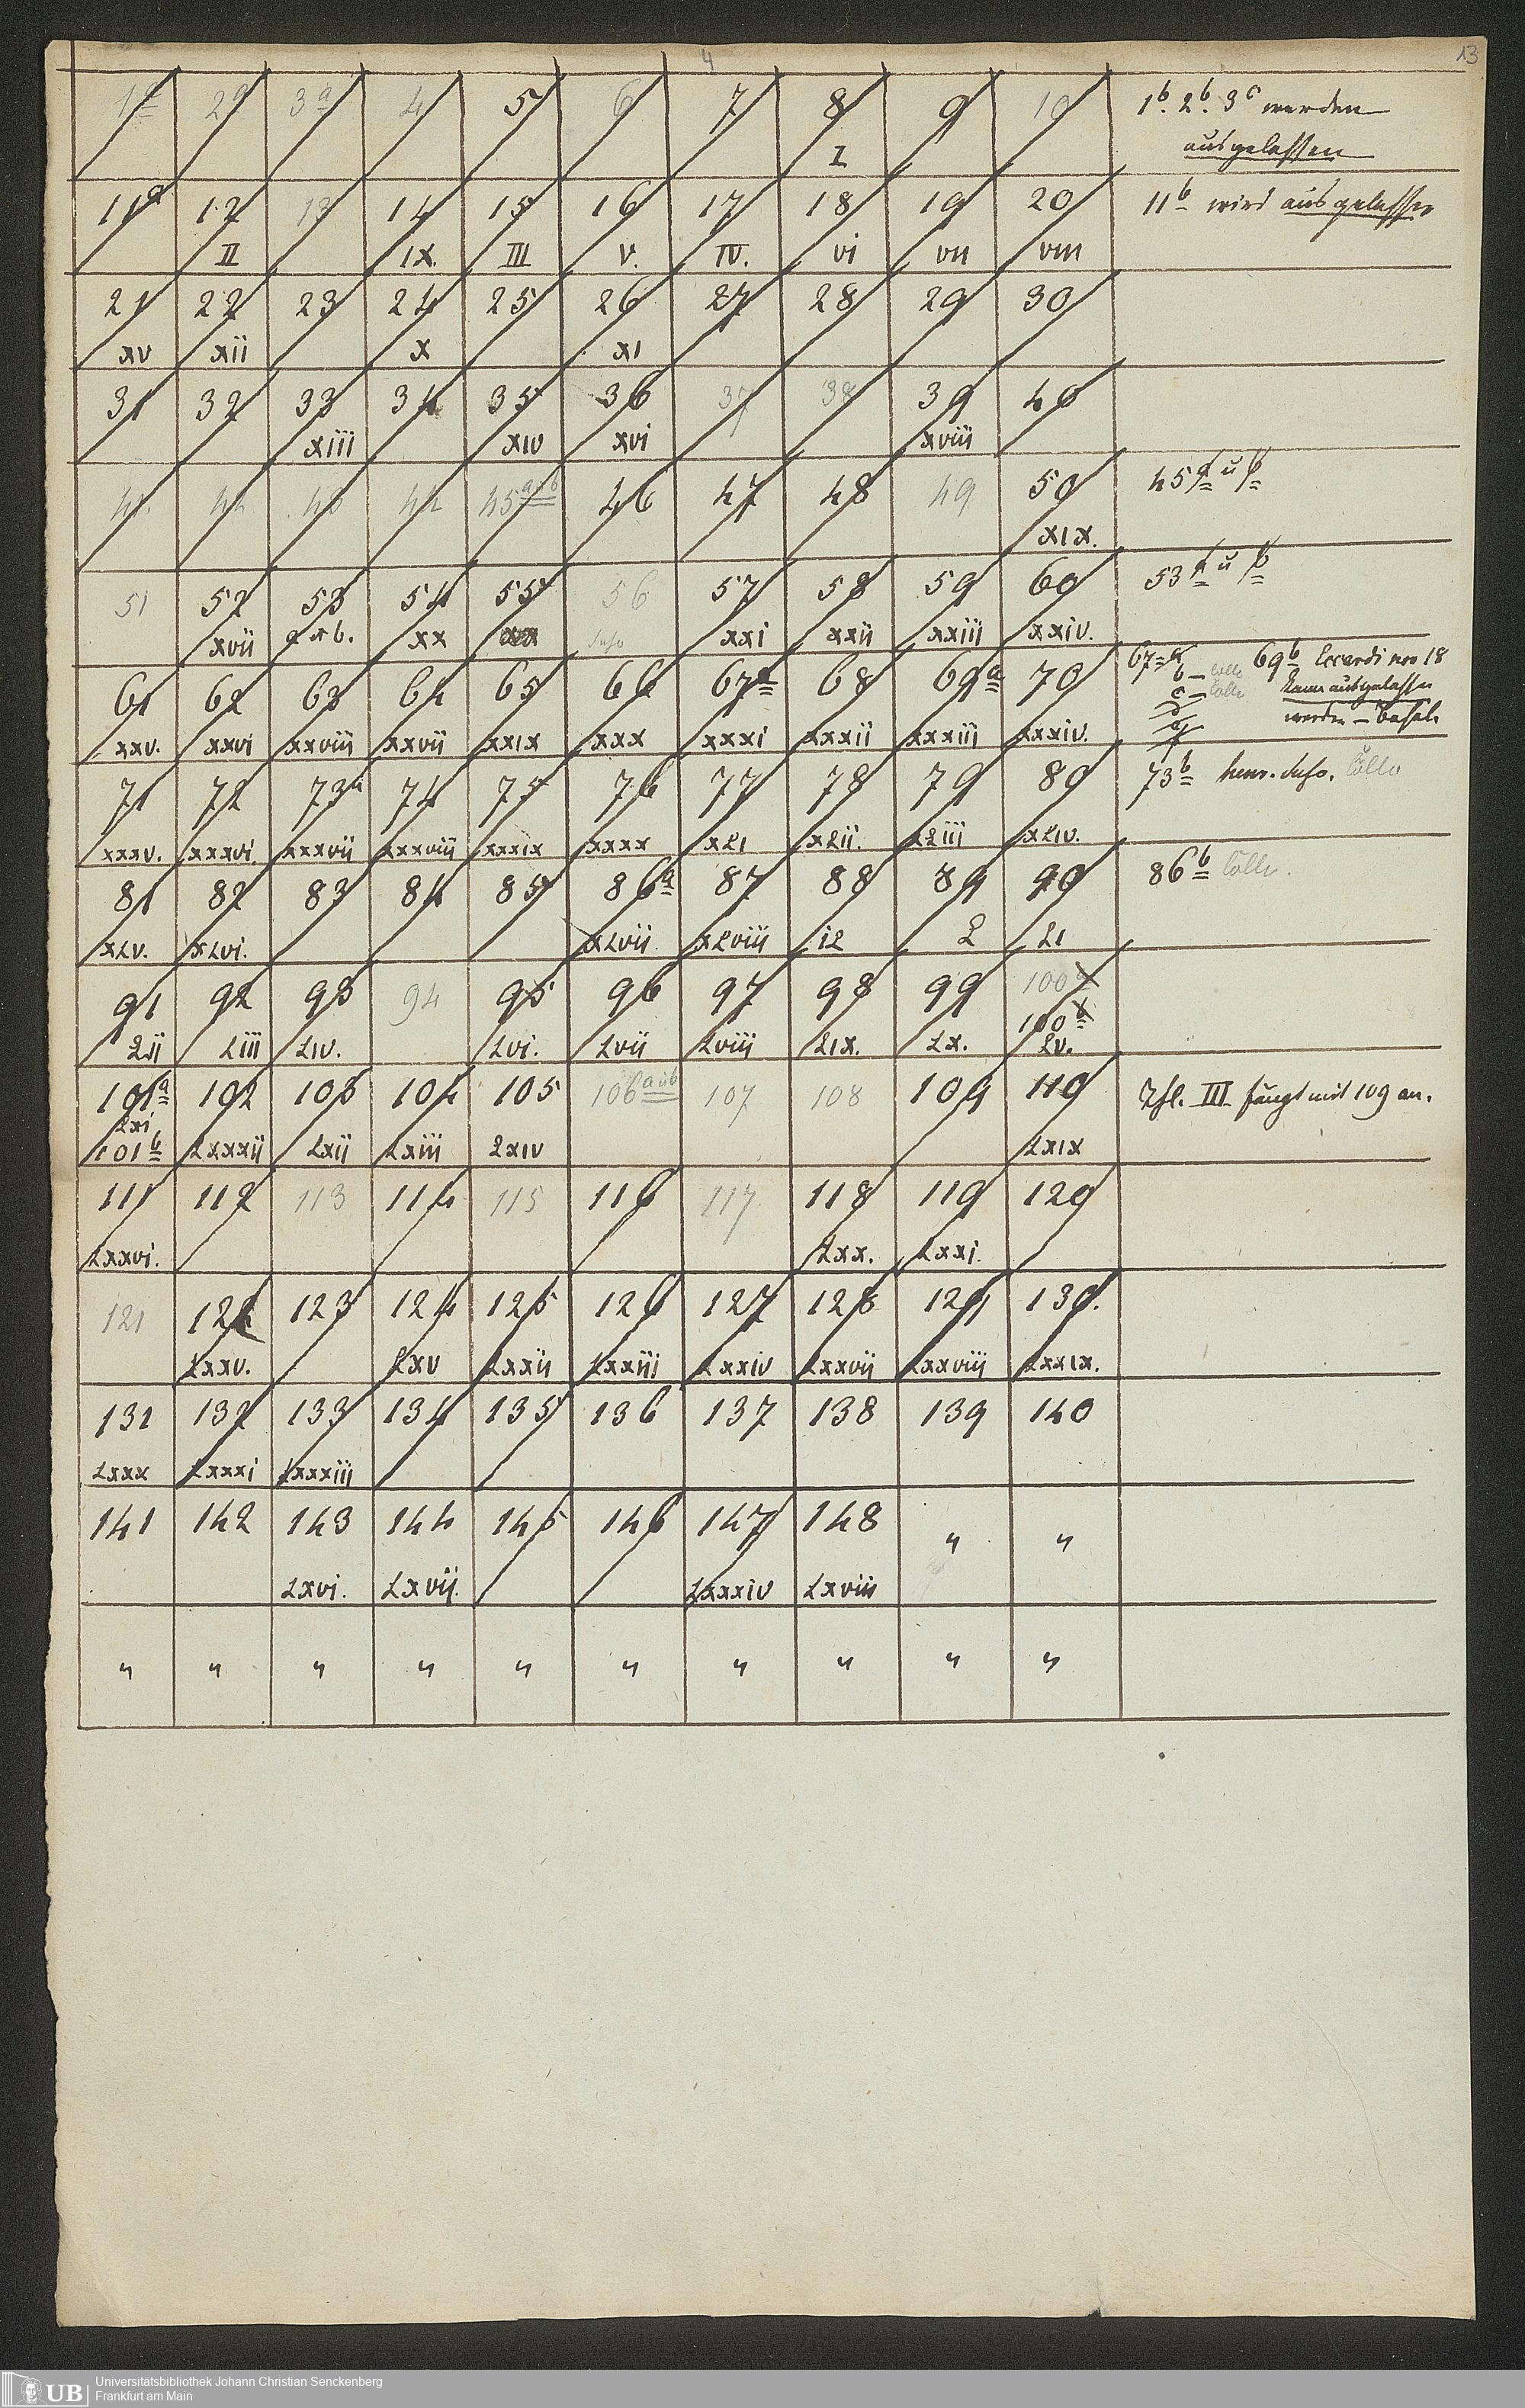 4 13
1a 2a 3a 4 5 6 7 8 9 10 1b. 2b. 3c werden
I ausgelassen
11a 12 13 14 15 16 17 18 19 20 11b wird ausgelassen
II IX. III V. IV. VI VII VIII
21 22 23 24 25 26 27 28 29 30
xv xii x xi
31 32 33 34 35 36 37 38 39 40
xiii xiv xvi xviii
41 42 43 44 45 a u b 46 47 48 49 50 45 a u b
xix.
51 52 53 54 55 56 57 58 59 60 53 a u b
xvii a x b. xx xxi xxii xxiii xxiv.
61 62 63 64 65 66 67a 68 69a 70 67 = a 69b Eccardi nro 18
b – Cölln kann ausgelassen
c – Cölln werden –
d
xxv. xxvi xxviii xxvii xxix xxx xxxi xxxii xxxiii xxxiv.
71 72 73a 74 75 76 77 78 79 80 73b Cölln
xxxv. xxxvi. xxxvii xxxviii xxxix xxxx xLi xLii. xLiii xLiv.
81 82 83 84 85 86a 87 88 89 90 86b Cölln.
xLv. xLvi. xLvii xLviii iL L Li
91 92 93 94 95 96 97 98 99 100a
100b
Lii Liii Liv. Lvi. Lvii Lviii Lix. Lx. Lv.
101a 102 103 104 105 106 a u b 107 108 109 110 Thl. III fängt mit 109 an.
Lxi
101b Lxxxii Lxii Lxiii Lxiv Lxix
111 112 113 114 115 116 117 118 119 120
Lxxvi. Lxx. Lxxi.
121 122 123 124 125 126 127 128 129 130.
Lxxv. Lxv Lxxii Lxxiii Lxxiv Lxxvii Lxxviii Lxxix.
131 132 133 134 135 136 137 138 139 140
Lxxx Lxxxi Lxxxiii
141 142 143 144 145 146 147 148 " "
Lxvi. Lxvii. Lxxxiv Lxviii
" " " " " " " " " "
UB Universitätsbibliothek Johann Christian Senckenberg
Frankfurt am Main